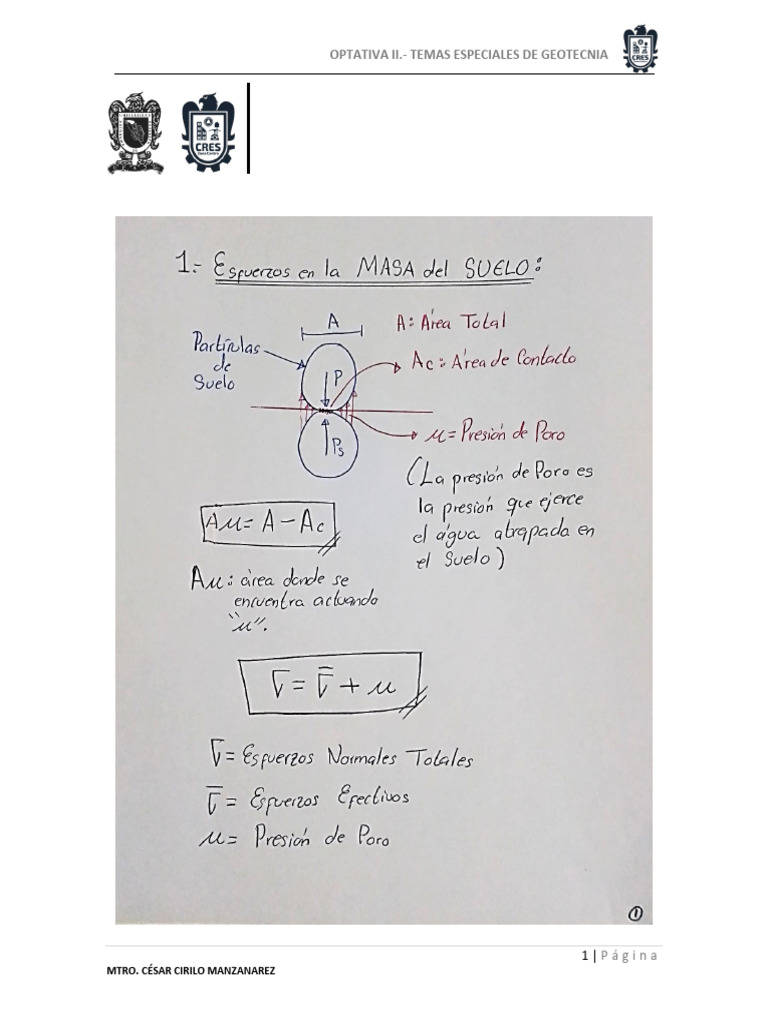 OPTATIVA II.- TEMAS ESPECIALES DE GEOTECNIA
CRES
CRES
1.- Esfuerzos en la MASA del SUELO:
A
A: Área Total
Partículas
de
Suelo
Ac: Área de Contacto
P
Ps
μ = Presión de Poro
(La presión de Poro es
la presión que ejerce
el água atrapada en
el Suelo)
Aμ = A - Ac
Aμ: área donde se
encuentra actuando
"μ".
σ = σ̅ + μ
σ = Esfuerzos Normales Totales
σ̅ = Esfuerzos Efectivos
μ = Presión de Poro
1
1 | Página
MTRO. CÉSAR CIRILO MANZANAREZ